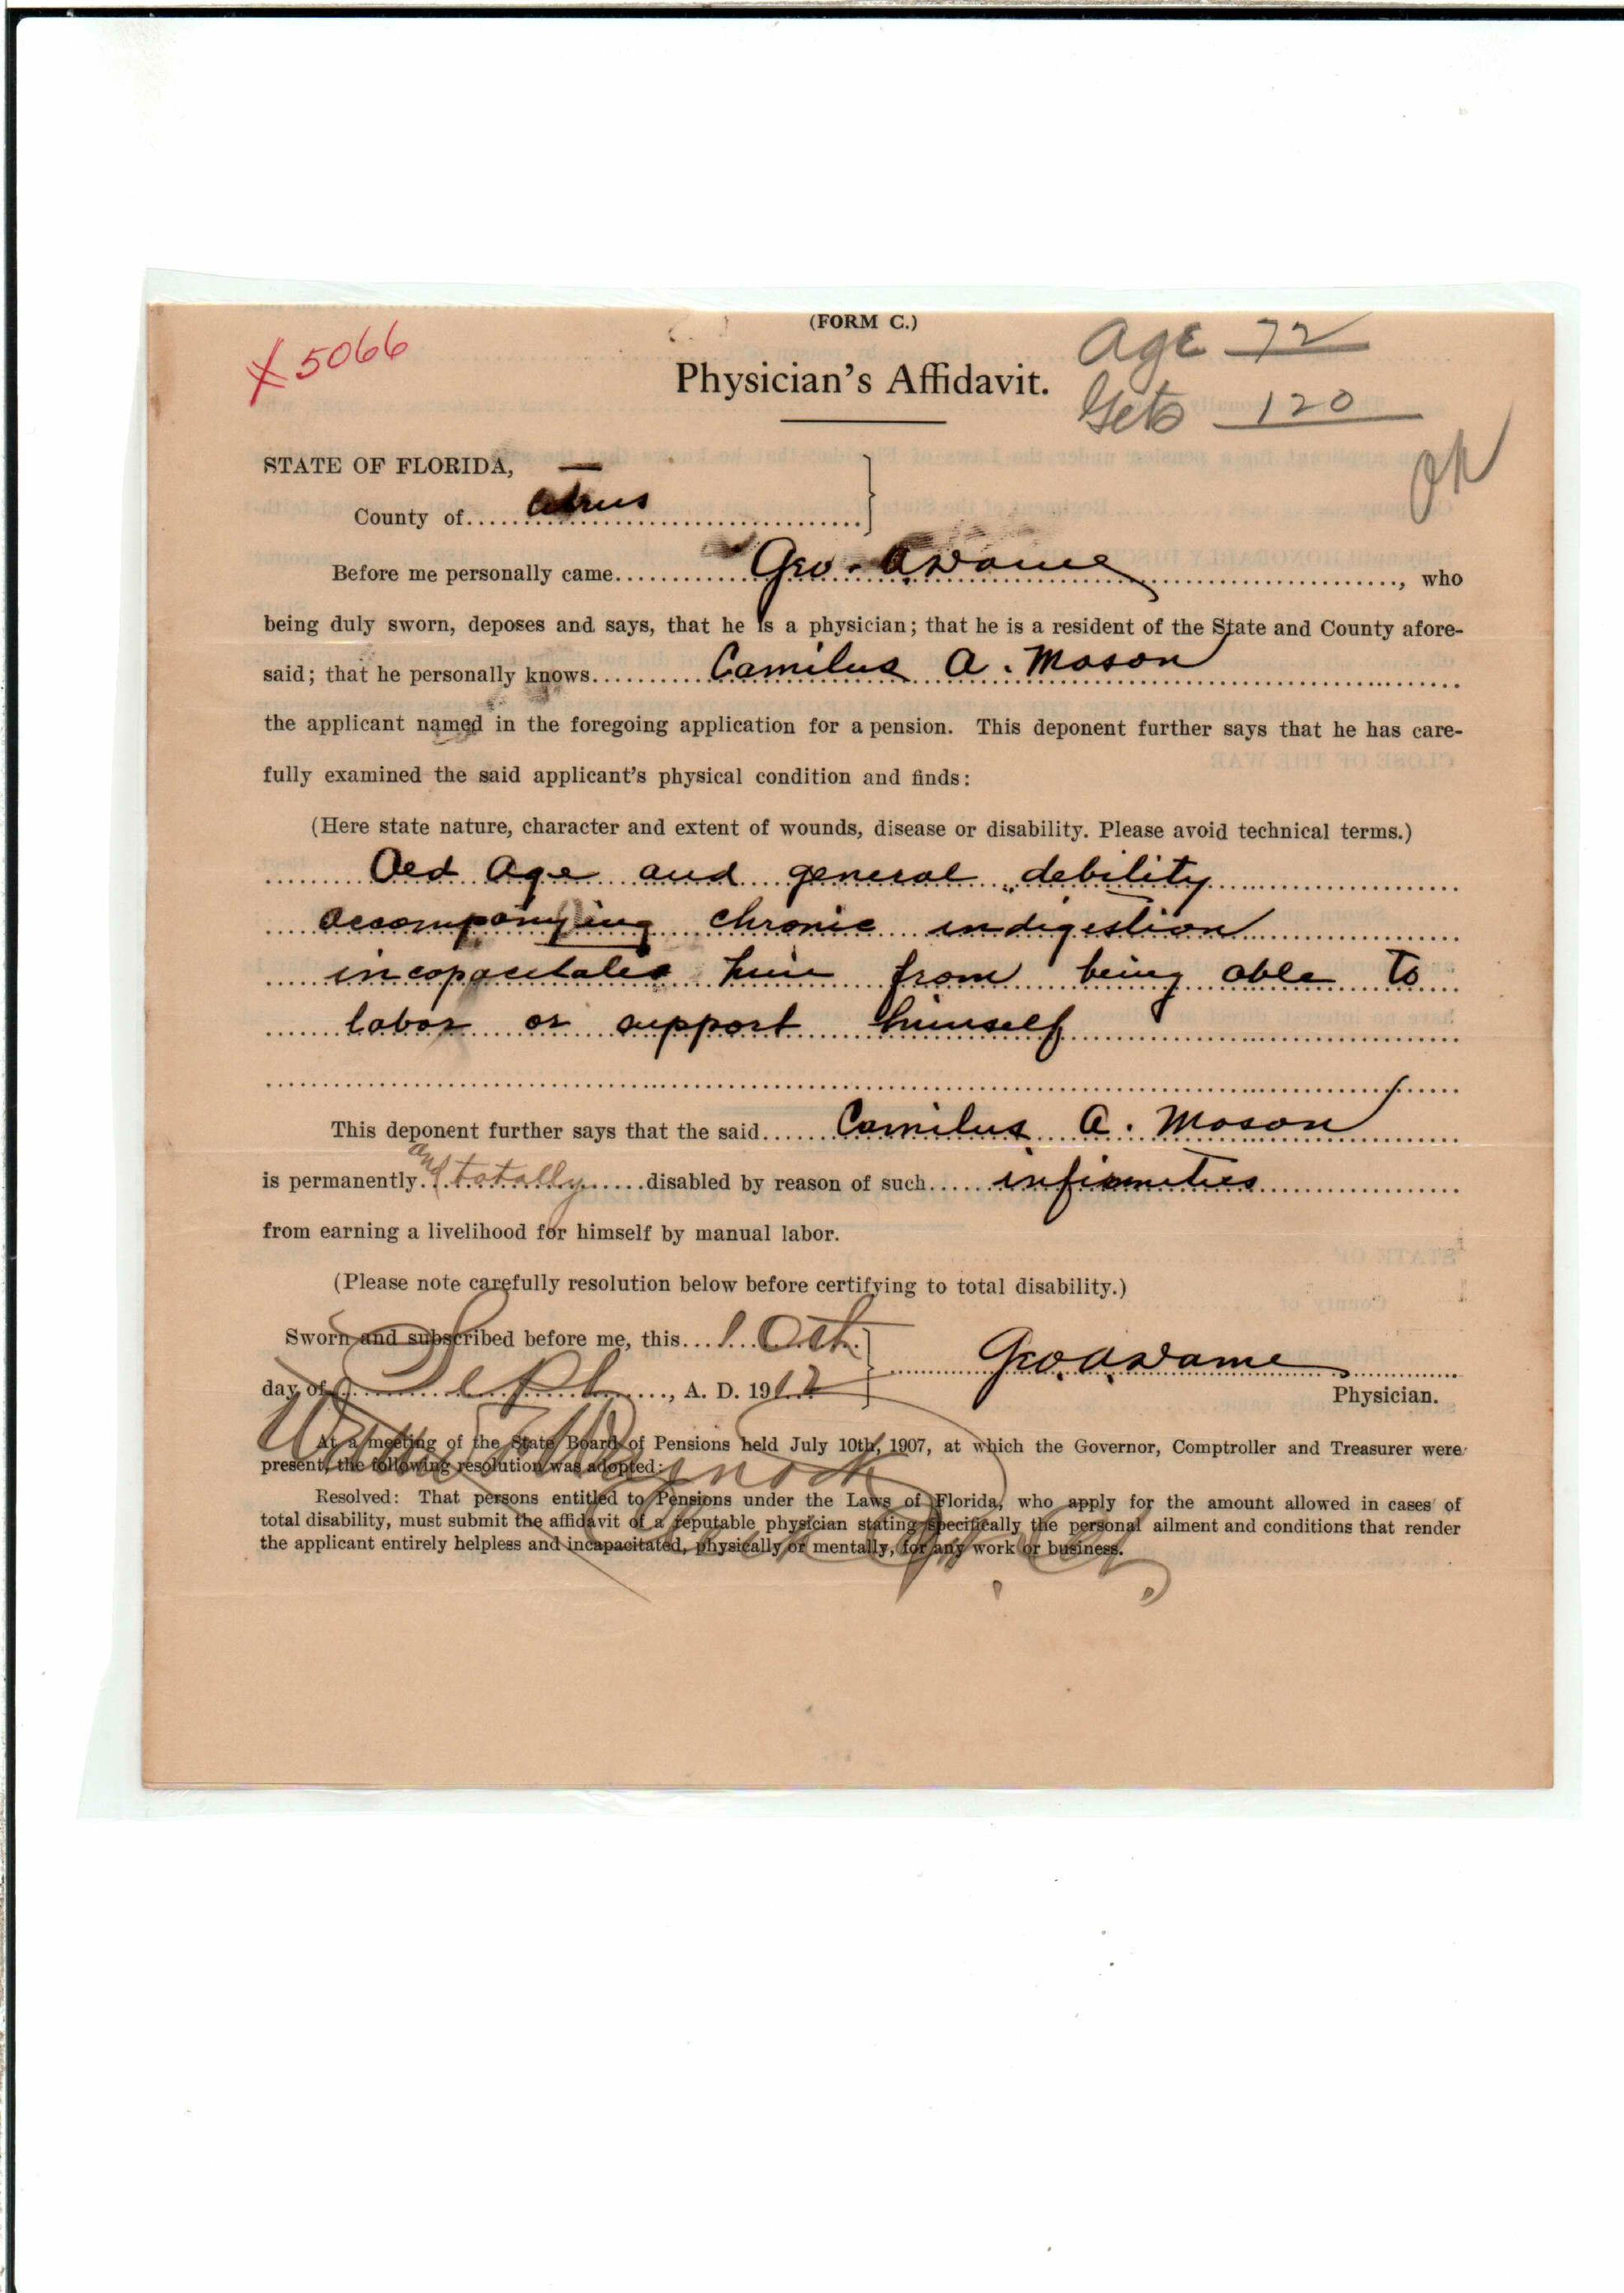 (FORM C.)
5066
Age 72
Physician's Affidavit.
Gets 120
OK
STATE OF FLORIDA,
County of Citrus
Before me personally came Geo. A Dame, who
being duly sworn, deposes and says, that he is a physician; that he is a resident of the State and County afore-
said; that he personally knows Camilus A. Mason
the applicant named in the foregoing application for a pension. This deponent further says that he has care-
fully examined the said applicant's physical condition and finds:
(Here state nature, character and extent of wounds, disease or disability. Please avoid technical terms.)
Old Age and general debility
accompanying chronic indigestion
incapacitates him from being able to
labor or support himself
This deponent further says that the said Camilus A. Mason
is permanently and totally disabled by reason of such infirmities
from earning a livelihood for himself by manual labor.
(Please note carefully resolution below before certifying to total disability.)
Sworn and subscribed before me, this 10th
day of Sept, A. D. 1912
Geo. A Dame
Physician.
At a meeting of the State Board of Pensions held July 10th, 1907, at which the Governor, Comptroller and Treasurer were
present, the following resolution was adopted:
Resolved: That persons entitled to Pensions under the Laws of Florida, who apply for the amount allowed in cases of
total disability, must submit the affidavit of a reputable physician stating specifically the personal ailment and conditions that render
the applicant entirely helpless and incapacitated, physically or mentally, for any work or business.